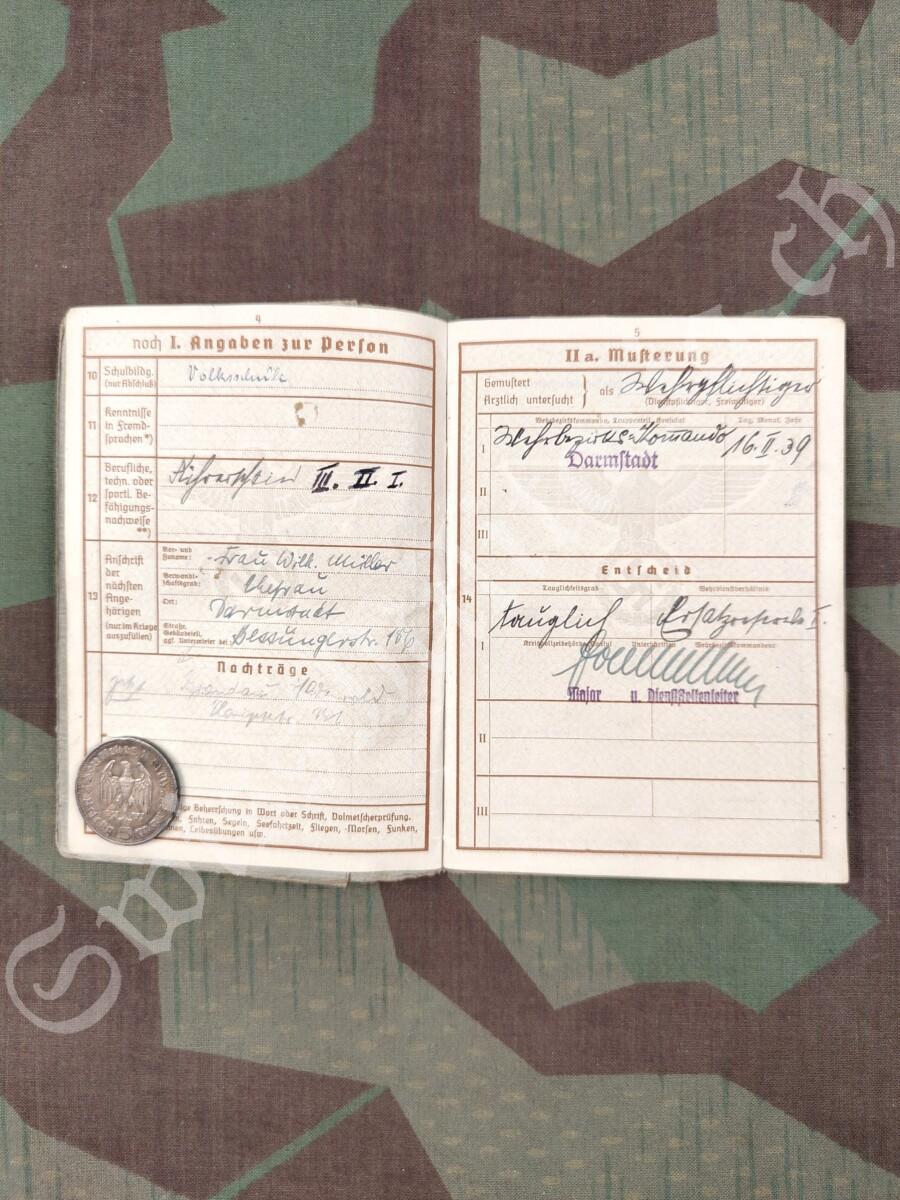 4
noch I. Angaben zur Person
10 Schulbildg. (nur Abschluß) Volksschule
11 Kenntnisse in Fremdsprachen *)
12 Berufliche, techn. oder sportl. Befähigungsnachweise **) Führerschein III. II. I.
13 Anschrift der nächsten Angehörigen (nur im Kriege auszufüllen)
Vor- und Zuname: Frau Wilh. Müller
Verwandtschaftsgrad: Ehefrau
Ort: Darmstadt
Straße, Gebäudeteil, ggf. Untermieter bei: Bessungerstr.
Nachträge
ige Beherrschung in Wort oder Schrift, Dolmetscherprüfung.
Fahren, Segeln, Seefahrtzeit, Fliegen, Morsen, Funken,
Leibesübungen usw.
5
IIa. Musterung
Gemustert
Ärztlich untersucht als Wehrpflichtiger
(Dienstpflichtiger, Freiwilliger)
Wehrbezirkskommando, Truppenteil, Konsulat Tag, Monat, Jahr
I Wehrbezirks-Komando 16.II.39
Darmstadt
II
III
Entscheid
14
Tauglichkeitsgrad Wehrdienstverhältnis
tauglich Ersatzreserve I.
I
Major u. Dienststellenleiter
II
III